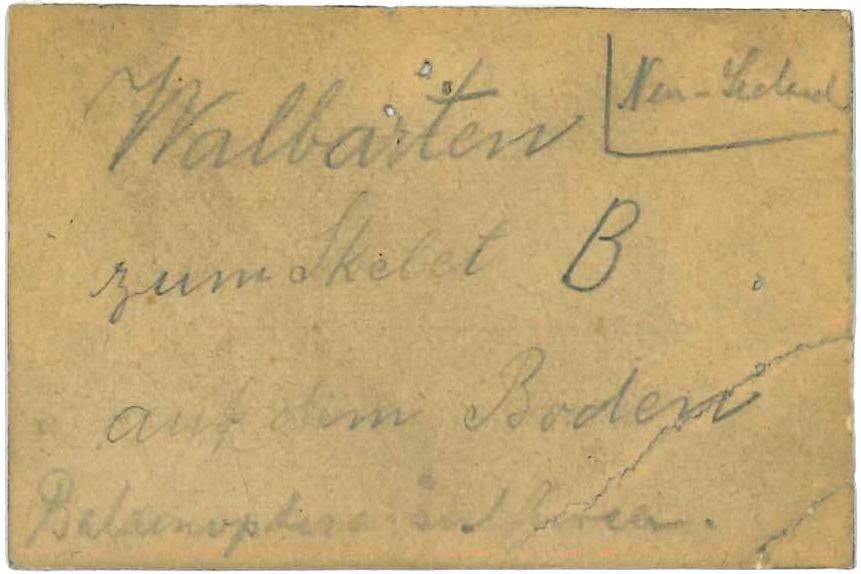 Walbarten
Neu-Seeland
zum Skelet B
auf dem Boden
Balaenoptera sulfurea.